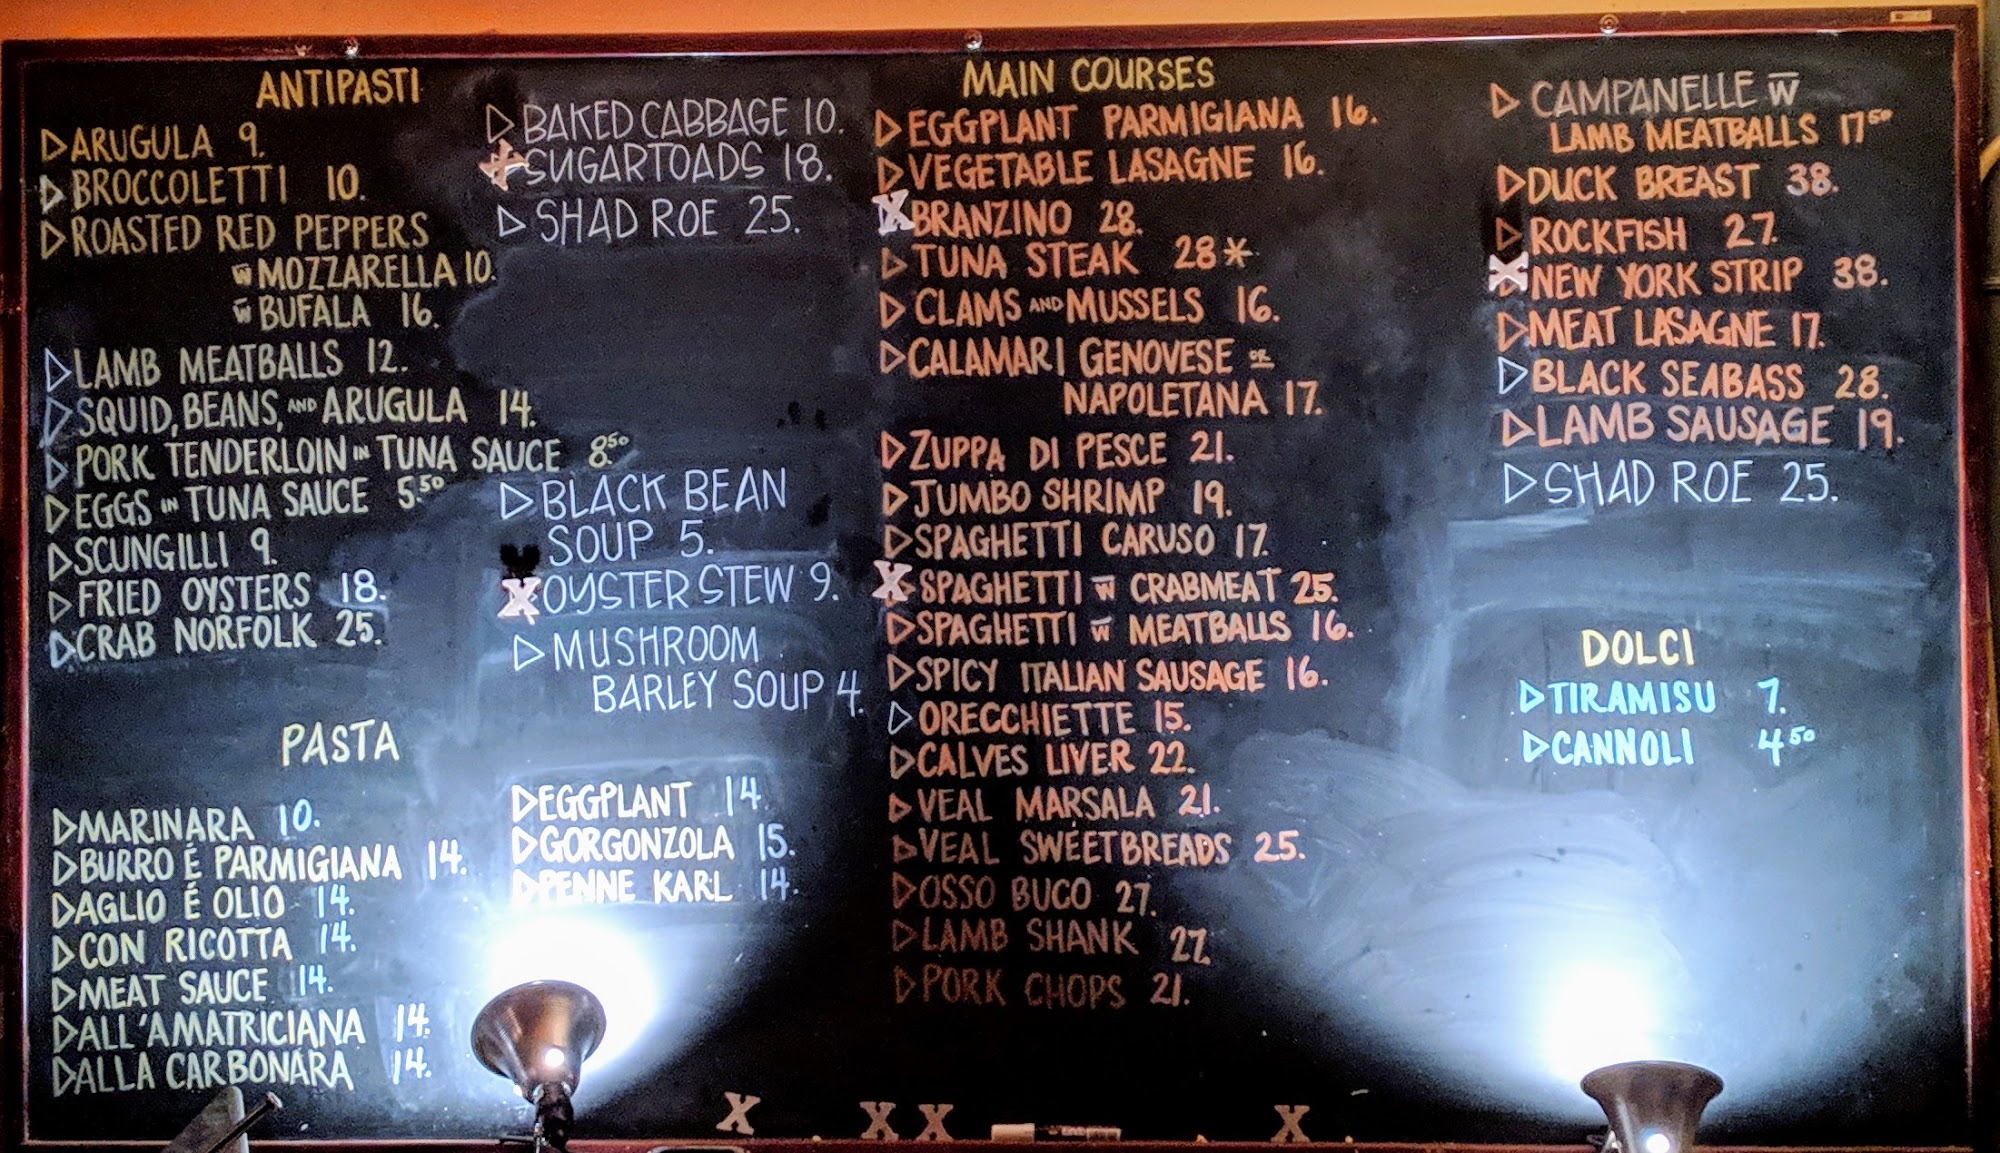 ANTIPASTI
ARUGULA 9.
BROCCOLETTI 10.
ROASTED RED PEPPERS
w̅ MOZZARELLA 10.
w̅ BUFALA 16.
LAMB MEATBALLS 12.
SQUID, BEANS, AND ARUGULA 14.
PORK TENDERLOIN IN TUNA SAUCE 8.50
EGGS IN TUNA SAUCE 5.50
SCUNGILLI 9.
FRIED OYSTERS 18.
CRAB NORFOLK 25.
BAKED CABBAGE 10.
SUGARTOADS 18.
SHAD ROE 25.
BLACK BEAN
SOUP 5.
X OYSTER STEW 9.
MUSHROOM
BARLEY SOUP 4.
PASTA
MARINARA 10.
BURRO É PARMIGIANA 14.
AGLIO É OLIO 14.
CON RICOTTA 14.
MEAT SAUCE 14.
ALL'AMATRICIANA 14.
ALLA CARBONARA 14.
EGGPLANT 14
GORGONZOLA 15.
PENNE KARL 14.
MAIN COURSES
EGGPLANT PARMIGIANA 16.
VEGETABLE LASAGNE 16.
X BRANZINO 28.
TUNA STEAK 28*
CLAMS AND MUSSELS 16.
CALAMARI GENOVESE OR
NAPOLETANA 17.
ZUPPA DI PESCE 21.
JUMBO SHRIMP 19.
SPAGHETTI CARUSO 17.
X SPAGHETTI w̅ CRABMEAT 25.
SPAGHETTI w̅ MEATBALLS 16.
SPICY ITALIAN SAUSAGE 16.
ORECCHIETTE 15.
CALVES LIVER 22.
VEAL MARSALA 21.
VEAL SWEETBREADS 25.
OSSO BUCO 27.
LAMB SHANK 27.
PORK CHOPS 21.
CAMPANELLE w̅
LAMB MEATBALLS 17.50
DUCK BREAST 38.
ROCKFISH 27.
X NEW YORK STRIP 38.
MEAT LASAGNE 17.
BLACK SEABASS 28.
LAMB SAUSAGE 19.
SHAD ROE 25.
DOLCI
TIRAMISU 7.
CANNOLI 4.50
X X X X